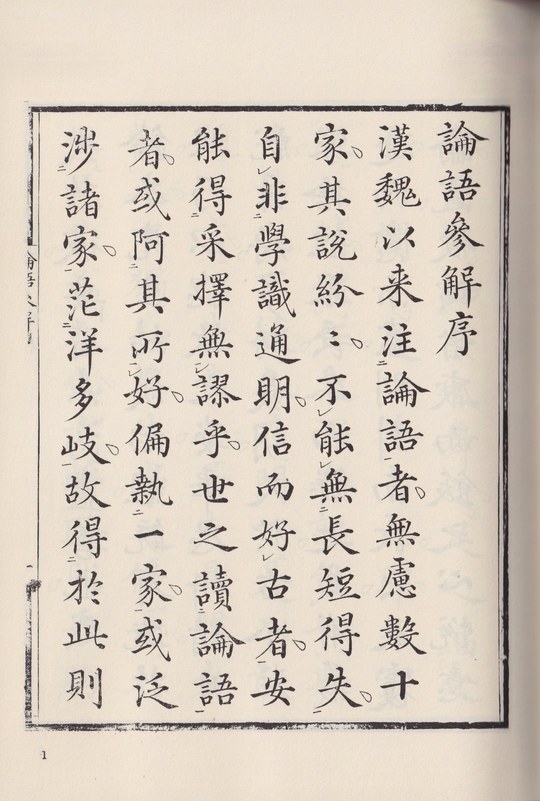 論語參解序
漢魏以来注論語者無慮數十
家其說紛〻不能無長短得失
自非學識通明信而好古者安
能得采擇無謬乎世之讀論語
者或阿其所好偏執一家或泛
渉諸家茫洋多岐故得於此則
1